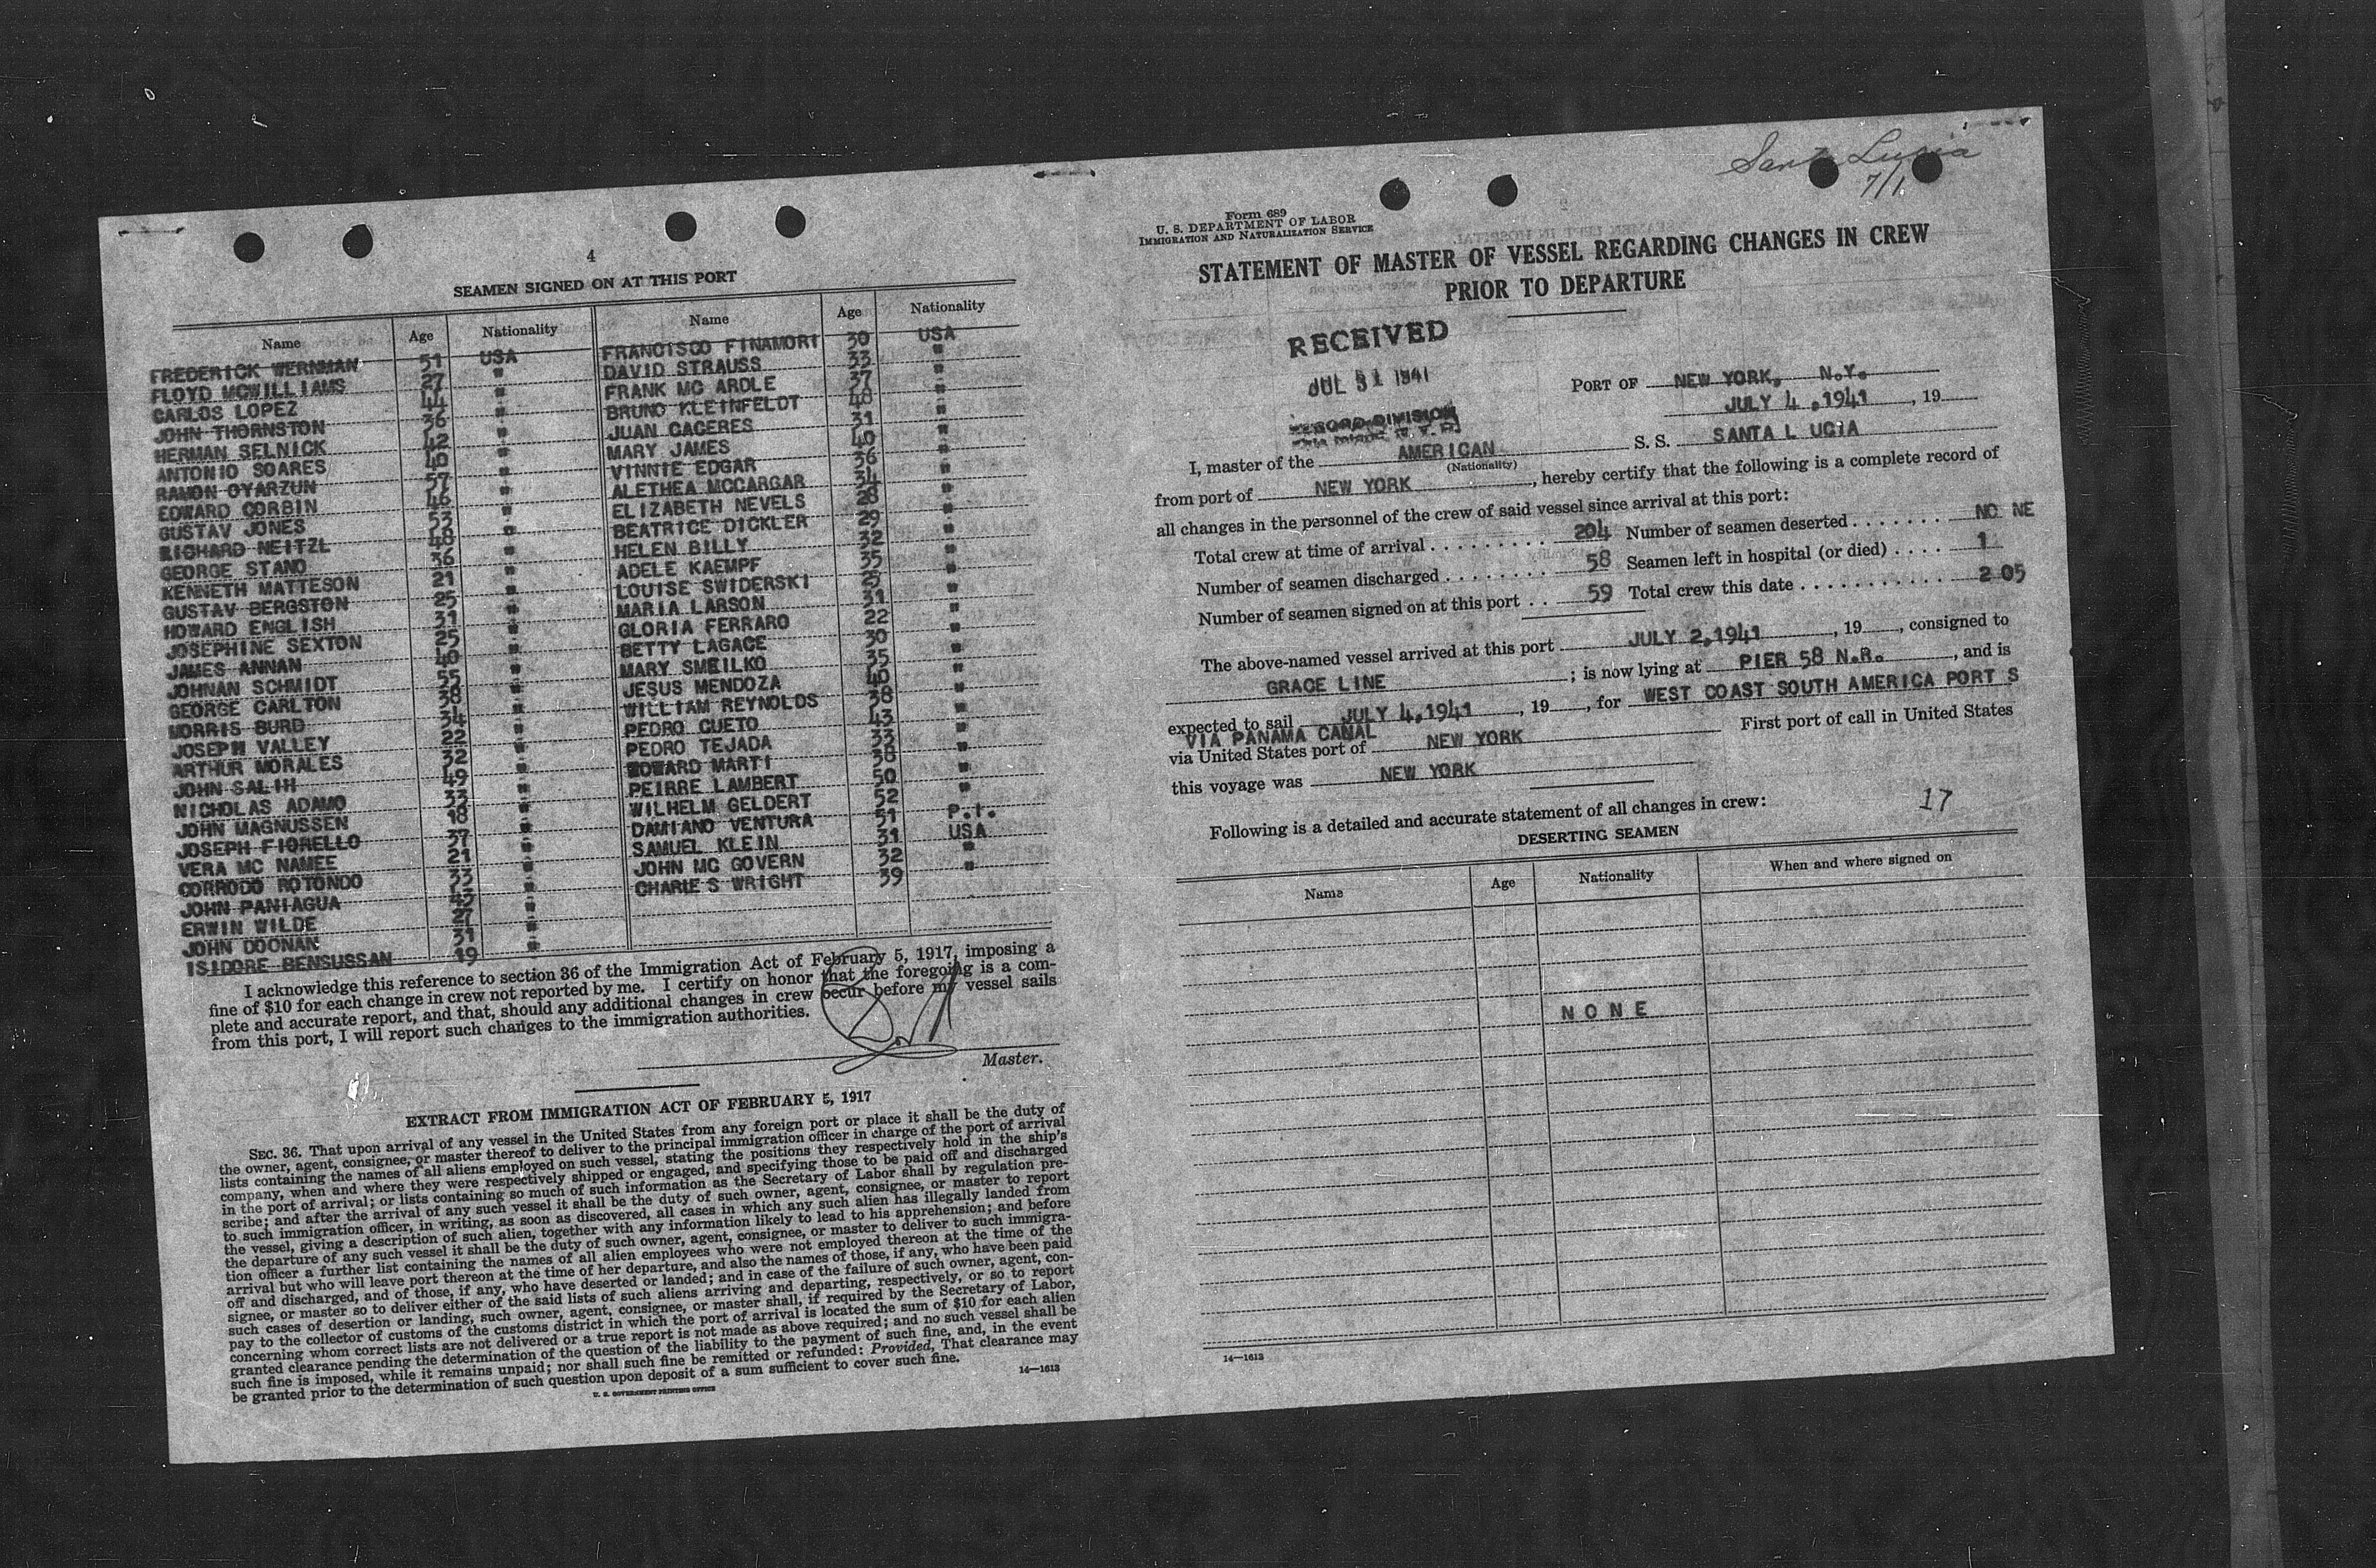 4
SEAMEN SIGNED ON AT THIS PORT
Name Age Nationality Name Age Nationality
FREDERICK WERNMAN 51 USA FRANCISCO FINAMORI 30 USA
FLOYD MCWILLIAMS 27 " DAVID STRAUSS 33 "
CARLOS LOPEZ 44 " FRANK MC ARDLE 37 "
JOHN THORNSTON 36 " BRUNO KLEINFELDT 48 "
HERMAN SELNICK 42 " JUAN CACERES 31 "
ANTONIO SOARES 40 " MARY JAMES 40 "
RAMON OYARZUN 57 " VINNIE EDGAR 36 "
EDWARD CORBIN 46 " ALETHEA MCCARGAR 34 "
GUSTAV JONES 53 " ELIZABETH NEVELS 28 "
RICHARD NEITZL 48 " BEATRICE DICKLER 29 "
GEORGE STANO 36 " HELEN BILLY 32 "
KENNETH MATTESON 21 " ADELE KAEMPF 35 "
GUSTAV BERGSTON 25 " LOUISE SWIDERSKI 25 "
HOWARD ENGLISH 31 " MARIA LARSON 31 "
JOSEPHINE SEXTON 25 " GLORIA FERRARO 22 "
JAMES ANNAN 40 " BETTY LAGACE 30 "
JOHNAN SCHMIDT 55 " MARY SMEILKO 35 "
GEORGE CARLTON 38 " JESUS MENDOZA 40 "
MORRIS BURD 34 " WILLIAM REYNOLDS 38 "
JOSEPH VALLEY 22 " PEDRO CUETO 43 "
ARTHUR MORALES 32 " PEDRO TEJADA 33 "
JOHN SALIH 49 " EDWARD MARTI 38 "
NICHOLAS ADAMO 33 " PEIRRE LAMBERT 50 "
JOHN MAGNUSSEN 18 " WILHELM GELDERT 52 "
JOSEPH FIORELLO 37 " DAMIANO VENTURA 51 P.I.
VERA MC NAMEE 21 " SAMUEL KLEIN 31 USA
CORRODO ROTONDO 33 " JOHN MC GOVERN 32 "
JOHN PANIAGUA 42 " CHARLES WRIGHT 39 "
ERWIN WILDE 27 "
JOHN DOONAN 31 "
ISIDORE BENSUSSAN 19 "
I acknowledge this reference to section 36 of the Immigration Act of February 5, 1917, imposing a
fine of $10 for each change in crew not reported by me. I certify on honor that the foregoing is a com-
plete and accurate report, and that, should any additional changes in crew occur before my vessel sails
from this port, I will report such changes to the immigration authorities.
Master.
EXTRACT FROM IMMIGRATION ACT OF FEBRUARY 5, 1917
SEC. 36. That upon arrival of any vessel in the United States from any foreign port or place it shall be the duty of
the owner, agent, consignee, or master thereof to deliver to the principal immigration officer in charge of the port of arrival
lists containing the names of all aliens employed on such vessel, stating the positions they respectively hold in the ship's
company, when and where they were respectively shipped or engaged, and specifying those to be paid off and discharged
in the port of arrival; or lists containing so much of such information as the Secretary of Labor shall by regulation pre-
scribe; and after the arrival of any such vessel it shall be the duty of such owner, agent, consignee, or master to report
to such immigration officer, in writing, as soon as discovered, all cases in which any such alien has illegally landed from
the vessel, giving a description of such alien, together with any information likely to lead to his apprehension; and before
the departure of any such vessel it shall be the duty of such owner, agent, consignee, or master to deliver to such immigra-
tion officer a further list containing the names of all alien employees who were not employed thereon at the time of the
arrival but who will leave port thereon at the time of her departure, and also the names of those, if any, who have been paid
off and discharged, and of those, if any, who have deserted or landed; and in case of the failure of such owner, agent, con-
signee, or master so to deliver either of the said lists of such aliens arriving and departing, respectively, or so to report
such cases of desertion or landing, such owner, agent, consignee, or master shall, if required by the Secretary of Labor,
pay to the collector of customs of the customs district in which the port of arrival is located the sum of $10 for each alien
concerning whom correct lists are not delivered or a true report is not made as above required; and no such vessel shall be
granted clearance pending the determination of the question of the liability to the payment of such fine, and, in the event
such fine is imposed, while it remains unpaid; nor shall such fine be remitted or refunded: Provided, That clearance may
be granted prior to the determination of such question upon deposit of a sum sufficient to cover such fine.
U. S. GOVERNMENT PRINTING OFFICE
14—1613
Santa Lucia
7/1
Form 689
U. S. DEPARTMENT OF LABOR
IMMIGRATION AND NATURALIZATION SERVICE
STATEMENT OF MASTER OF VESSEL REGARDING CHANGES IN CREW
PRIOR TO DEPARTURE
RECEIVED
JUL 31 1941
RECORD DIVISION
PORT OF NEW YORK, N.Y.
JULY 4,1941, 19
I, master of the AMERICAN S. S. SANTA LUCIA
(Nationality)
from port of NEW YORK, hereby certify that the following is a complete record of
all changes in the personnel of the crew of said vessel since arrival at this port:
Total crew at time of arrival . . . . . . . . . 204 Number of seamen deserted . . . . . . . NO NE
Number of seamen discharged . . . . . . . . 58 Seamen left in hospital (or died) . . . . 1
Number of seamen signed on at this port . . 59 Total crew this date . . . . . . . . . . . 2 05
The above-named vessel arrived at this port JULY 2,1941, 19, consigned to
GRACE LINE; is now lying at PIER 58 N.R., and is
expected to sail JULY 4,1941, 19, for WEST COAST SOUTH AMERICA PORT S
VIA PANAMA CANAL
via United States port of NEW YORK First port of call in United States
this voyage was NEW YORK
Following is a detailed and accurate statement of all changes in crew:
17
DESERTING SEAMEN
Name Age Nationality When and where signed on
N O N E
14—1613